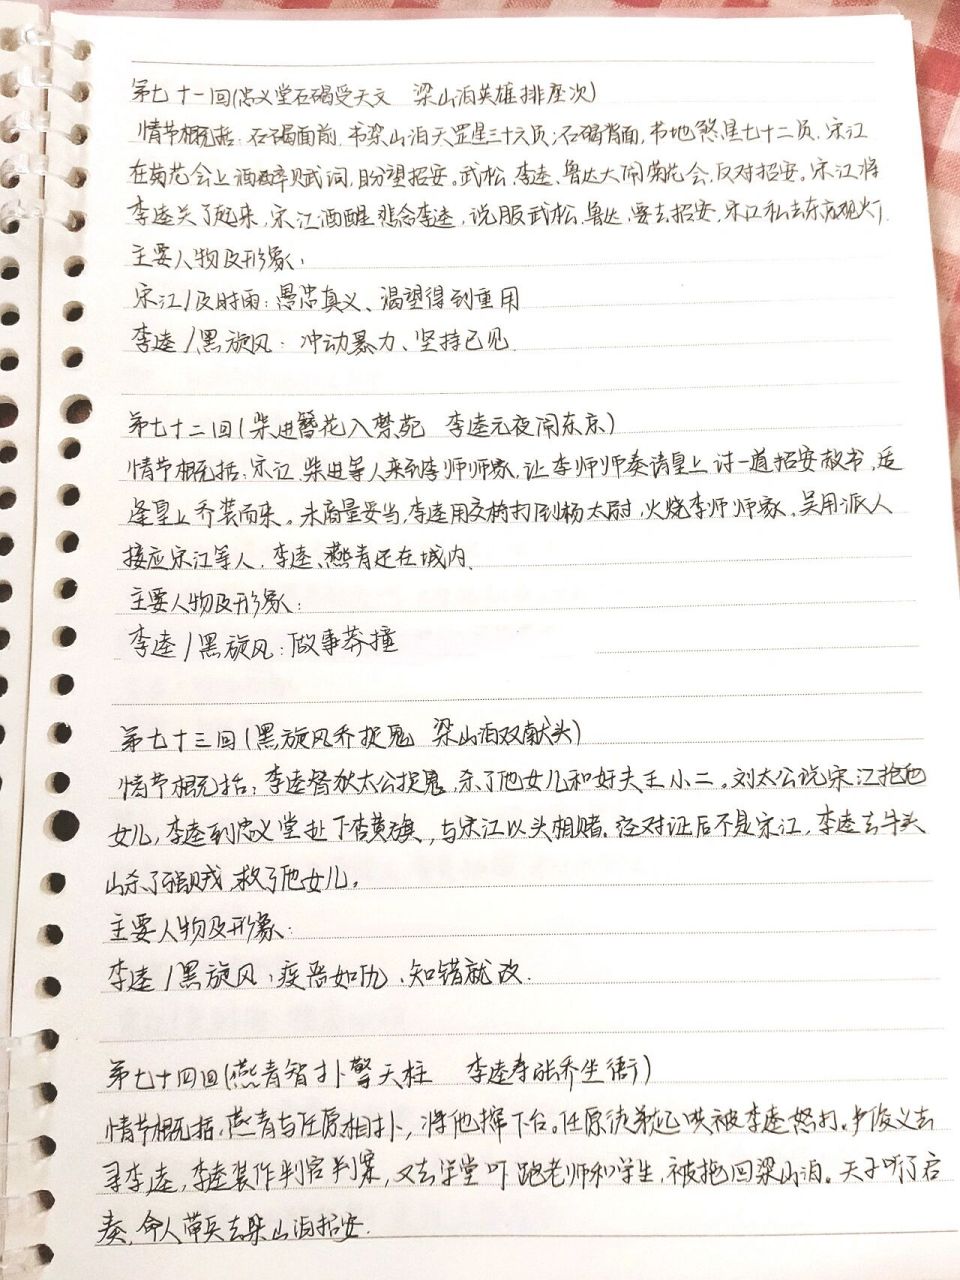 第七十一回(忠义堂石碣受天文 梁山泊英雄排座次)
情节概括:石碣面前,书梁山泊天罡星三十六员;石碣背面,书地煞星七十二员.宋江
在菊花会上酒醉赋词,盼望招安。武松,李逵、鲁达大闹菊花会,反对招安。宋江将
李逵关了起来,宋江酒醒悲念李逵,说服武松,鲁达,要去招安,宋江私去东京观灯.
主要人物及形象:
宋江/及时雨:愚忠真义、渴望得到重用
李逵/黑旋风:冲动暴力、坚持己见.
第七十二回(柴进簪花入禁苑 李逵元夜闹东京)
情节概括:宋江,柴进等人来到李师师家,让李师师奏请皇上讨一道招安赦书,适
逢皇上乔装而来。未商量妥当,李逵用交椅打倒杨太尉,火烧李师师家,吴用派人
接应宋江等人,李逵、燕青还在城内.
主要人物及形象:
李逵/黑旋风:做事莽撞
第七十三回(黑旋风乔捉鬼 梁山泊双献头)
情节概括:李逵替狄太公捉鬼,杀了他女儿和奸夫王小二。刘太公说宋江抢他
女儿,李逵到忠义堂扯下杏黄旗,与宋江以头相赌.经对证后不是宋江,李逵去牛头
山杀了强贼,救了他女儿。
主要人物及形象:
李逵/黑旋风:疾恶如仇、知错就改.
第七十四回(燕青智扑擎天柱 李逵寿张乔坐衙)
情节概括,燕青与任原相扑,将他撺下台。任原徒弟起哄被李逵怒打.卢俊义去
寻李逵,李逵装作判官判案,又去学堂吓跑老师和学生,被拖回梁山泊。天子听了启
奏,命人带兵去梁山泊招安.